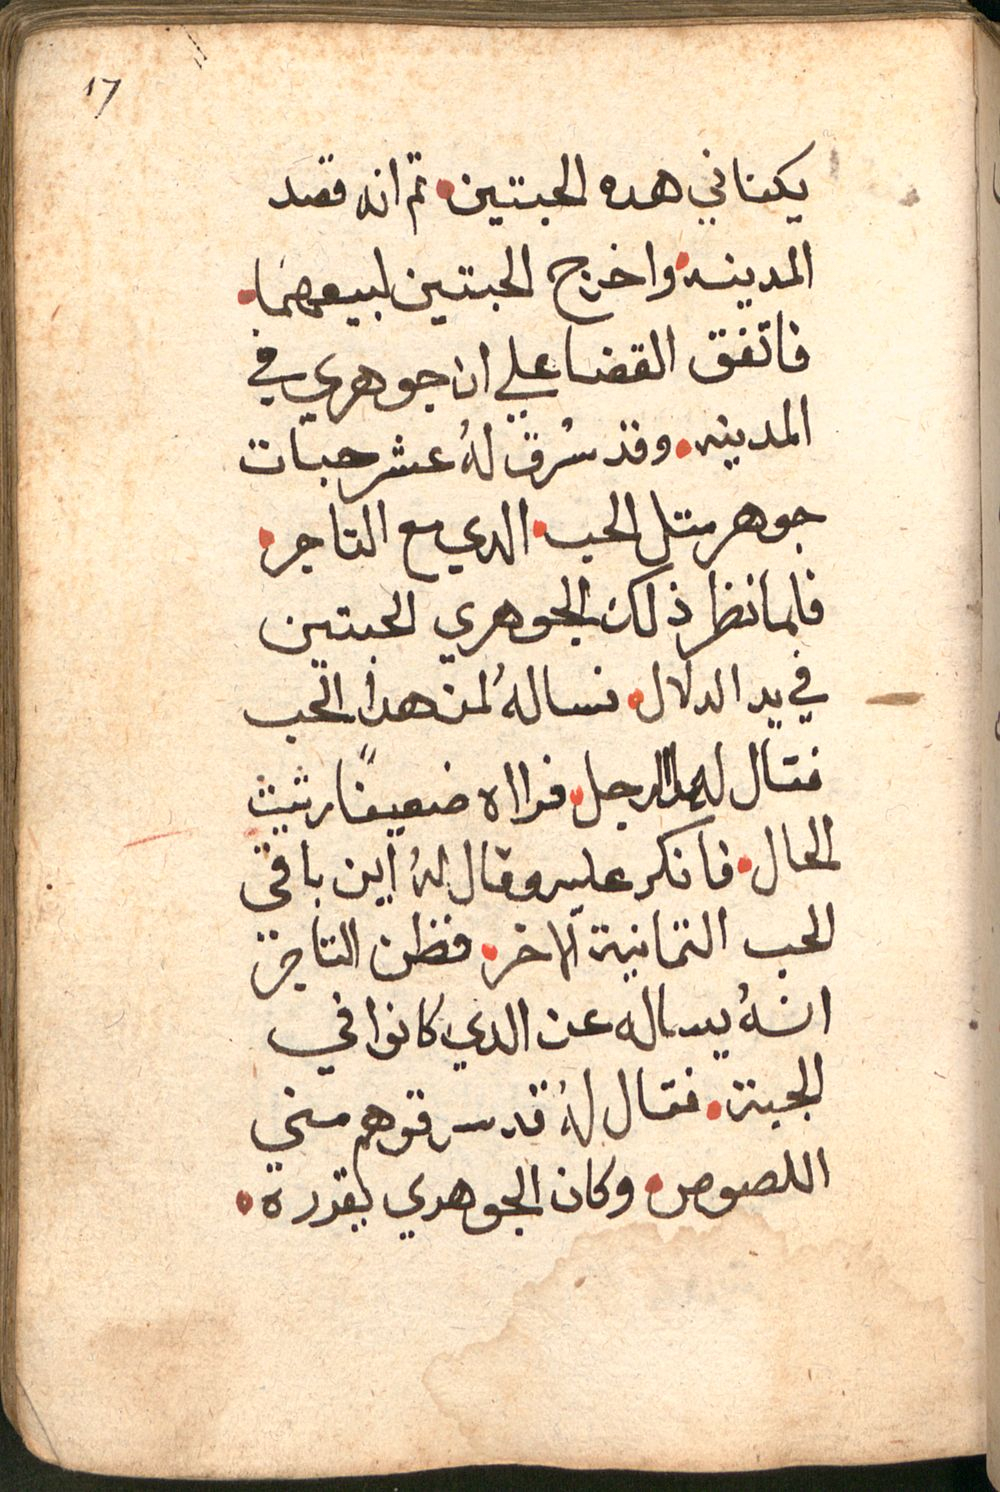 17
يكفنا في هده الحبتين • تم انه قصد
المدينه • واخرج الحبتين لبيعهما •
فاتفق القضا علي ان جوهري في
المدينه • وقد سُرق لهُ عشر حبات
جوهر متل الحب • الدي مع التاجر •
فلما نظر ذلك الجوهري الحبتين
في يد الدلال • فساله لمن هدا الحب
فقال له الرجل • فرااه ضعيفًا رثيث
الحال • فانكر عليه وقال لهُ اين باقي
الحب التمانية الاخر • فظن التاجر
انهُ يساله عن الدي كانوا في
الجبة • فقال لهُ قد سرقوهم مني
اللصوص • وكان الجوهري بقدره •